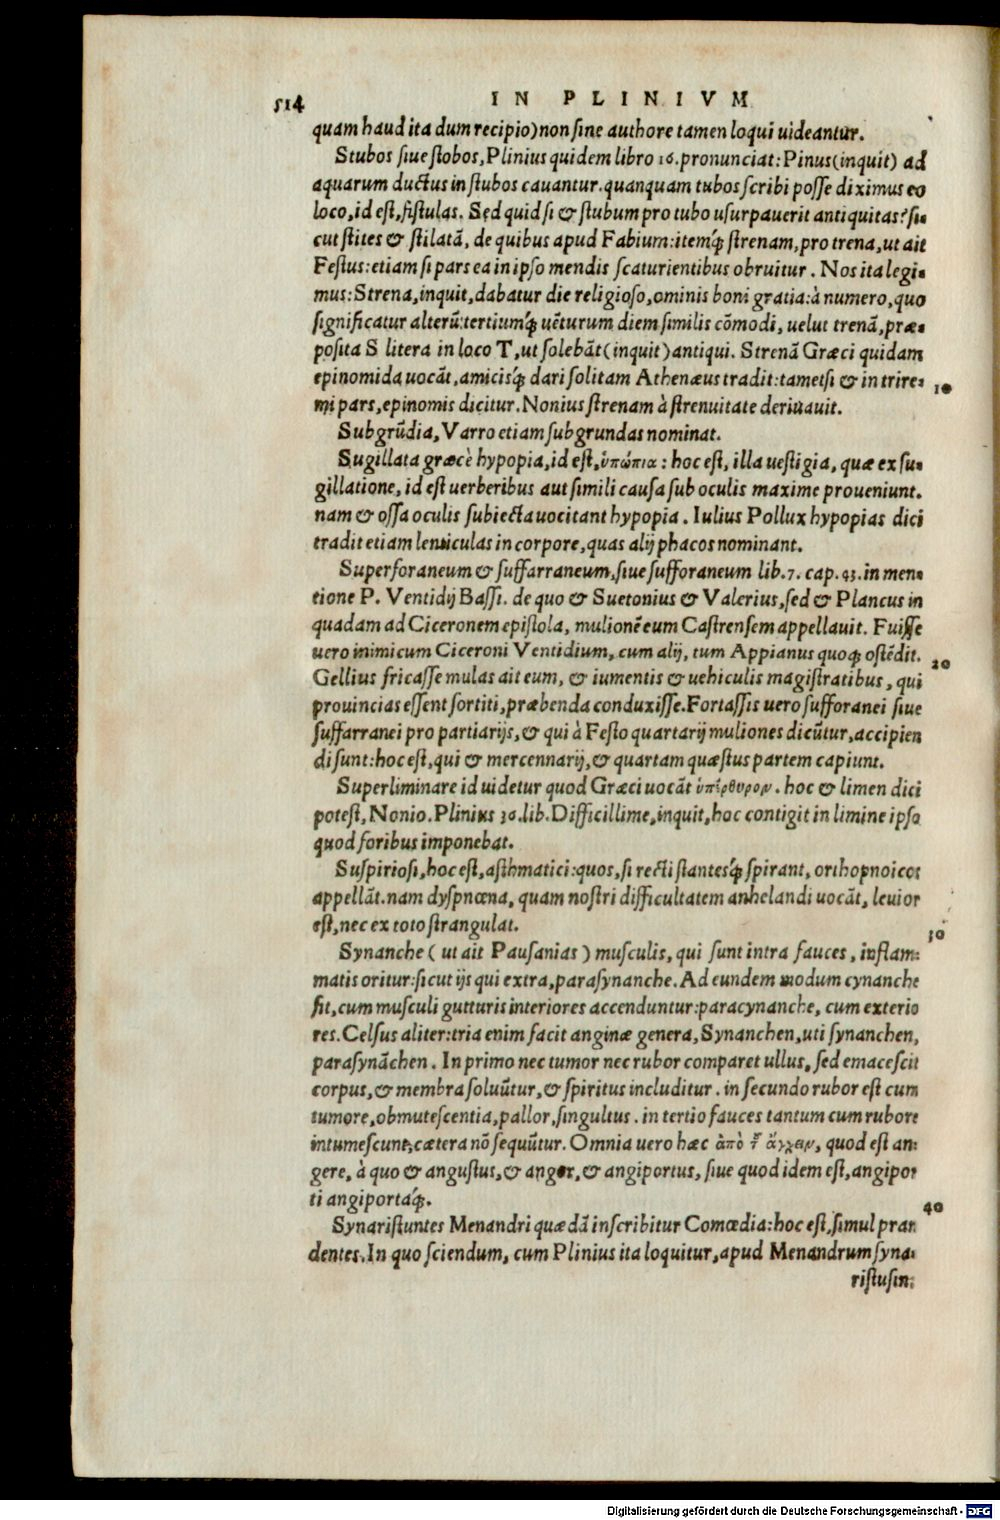 514 IN PLINIVM
quam haud ita dum recipio) non ſine authore tamen loqui uideantur.
Stubos ſiue ſtobos, Plinius quidem libro 16. pronunciat: Pinus (inquit) ad
aquarum ductus in ſtubos cauantur. quanquam tubos ſcribi poſſe diximus eo
loco, id eſt, fiſtulas. Sed quid ſi & ſtubum pro tubo uſurpauerit antiquitas? ſi-
cut ſtites & ſtilatā, de quibus apud Fabium: itemq́; ſtrenam, pro trena, ut ait
Feſtus: etiam ſi pars ea in ipſo mendis ſcaturientibus obruitur. Nos ita legi-
mus: Strena, inquit, dabatur die religioſo, ominis boni gratia: à numero, quo
ſignificatur alterū: tertiumq́; uēturum diem ſimilis cōmodi, uelut trenā, præ-
poſita S litera in loco T, ut ſolebāt (inquit) antiqui. Strenā Græci quidam
epinomida uocāt, amicisq́; dari ſolitam Athenæus tradit: tametſi & in trire- 10
mi pars, epinomis dicitur. Nonius ſtrenam à ſtrenuitate deriuauit.
Subgrūdia, Varro etiam ſubgrundas nominat.
Sugillata græcè hypopia, id eſt, ὑπώπια: hoc eſt, illa ueſtigia, quæ ex ſu-
gillatione, id eſt uerberibus aut ſimili cauſa ſub oculis maxime proueniunt.
nam & oſſa oculis ſubiecta uocitant hypopia. Iulius Pollux hypopias dici
tradit etiam lenticulas in corpore, quas alij phacos nominant.
Superforaneum & ſuffarraneum, ſiue ſufforaneum lib. 7. cap. 43. in men-
tione P. Ventidij Baſſi. de quo & Suetonius & Valerius, ſed & Plancus in
quadam ad Ciceronem epiſtola, mulionē eum Caſtrenſem appellauit. Fuiſſe
uero inimicum Ciceroni Ventidium, cum alij, tum Appianus quoq; oſtēdit. 20
Gellius fricaſſe mulas ait eum, & iumentis & uehiculis magiſtratibus, qui
prouincias eſſent ſortiti, præbenda conduxiſſe. Fortaſſis uero ſufforanei ſiue
ſuffarranei pro partiarijs, & qui à Feſto quartarij muliones dicūtur, accipien
di ſunt: hoc eſt, qui & mercennarij, & quartam quæſtus partem capiunt.
Superliminare id uidetur quod Græci uocāt ὑπέρθυρον. hoc & limen dici
poteſt, Nonio. Plinius 36. lib. Difficillime, inquit, hoc contigit in limine ipſo
quod foribus imponebat.
Suſpirioſi, hoc eſt, aſthmatici: quos, ſi recti ſtantesq́; ſpirant, orthopnoicos
appellāt. nam dyſpnœna, quam noſtri difficultatem anhelandi uocāt, leuior
eſt, nec ex toto ſtrangulat. 30
Synanche (ut ait Pauſanias) muſculis, qui ſunt intra fauces, inflam-
matis oritur: ſicut ijs qui extra, paraſynanche. Ad eundem modum cynanche
fit, cum muſculi gutturis interiores accenduntur: paracynanche, cum exterio
res. Celſus aliter: tria enim facit anginæ genera, Synanchen, uti ſynanchen,
paraſynāchen. In primo nec tumor nec rubor comparet ullus, ſed emaceſcit
corpus, & membra ſoluūtur, & ſpiritus includitur. in ſecundo rubor eſt cum
tumore, obmuteſcentia, pallor, ſingultus. in tertio fauces tantum cum rubore
intumeſcunt, cætera nō ſequūtur. Omnia uero hæc ἀπὸ τοῦ ἄγχειν, quod eſt an-
gere, à quo & anguſtus, & angor, & angiportus, ſiue quod idem eſt, angipor
ti angiportaq́;. 40
Synariſtuntes Menandri quædā inſcribitur Comœdia: hoc eſt, ſimul pran
dentes. In quo ſciendum, cum Plinius ita loquitur, apud Menandrum ſyna-
riſtuſin:
Digitalisierung gefördert durch die Deutsche Forschungsgemeinschaft - DFG